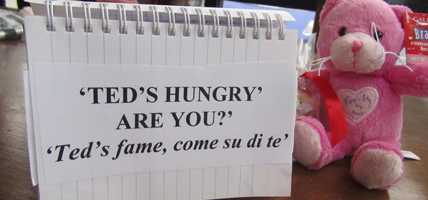 'TED'S HUNGRY'
ARE YOU?'
'Ted's fame, come su di te'